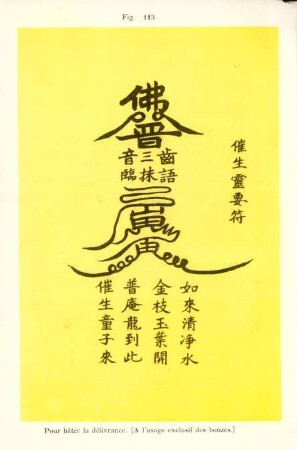 Fig. 113
催生靈要符
佛
普
音三齒
臨抹語
如來清凈水
金枝玉葉開
普庵龍到此
催生童子來
Pour hâter la délivrance. (A l'usage exclusif des bonzes.)